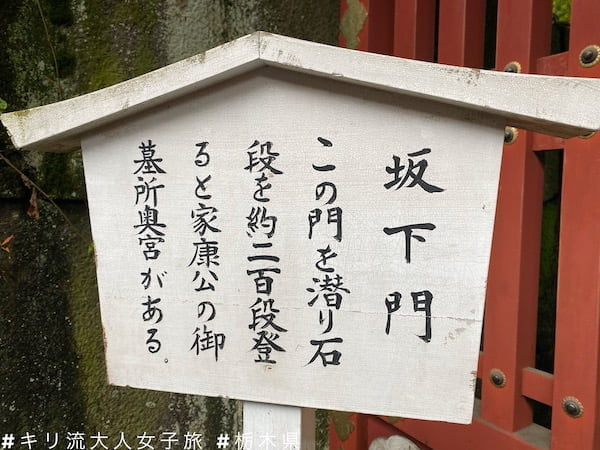 坂下門
この門を潜り石
段を約二百段登
ると家康公の御
墓所奥宮がある。
#キリ流大人女子旅 #栃木県